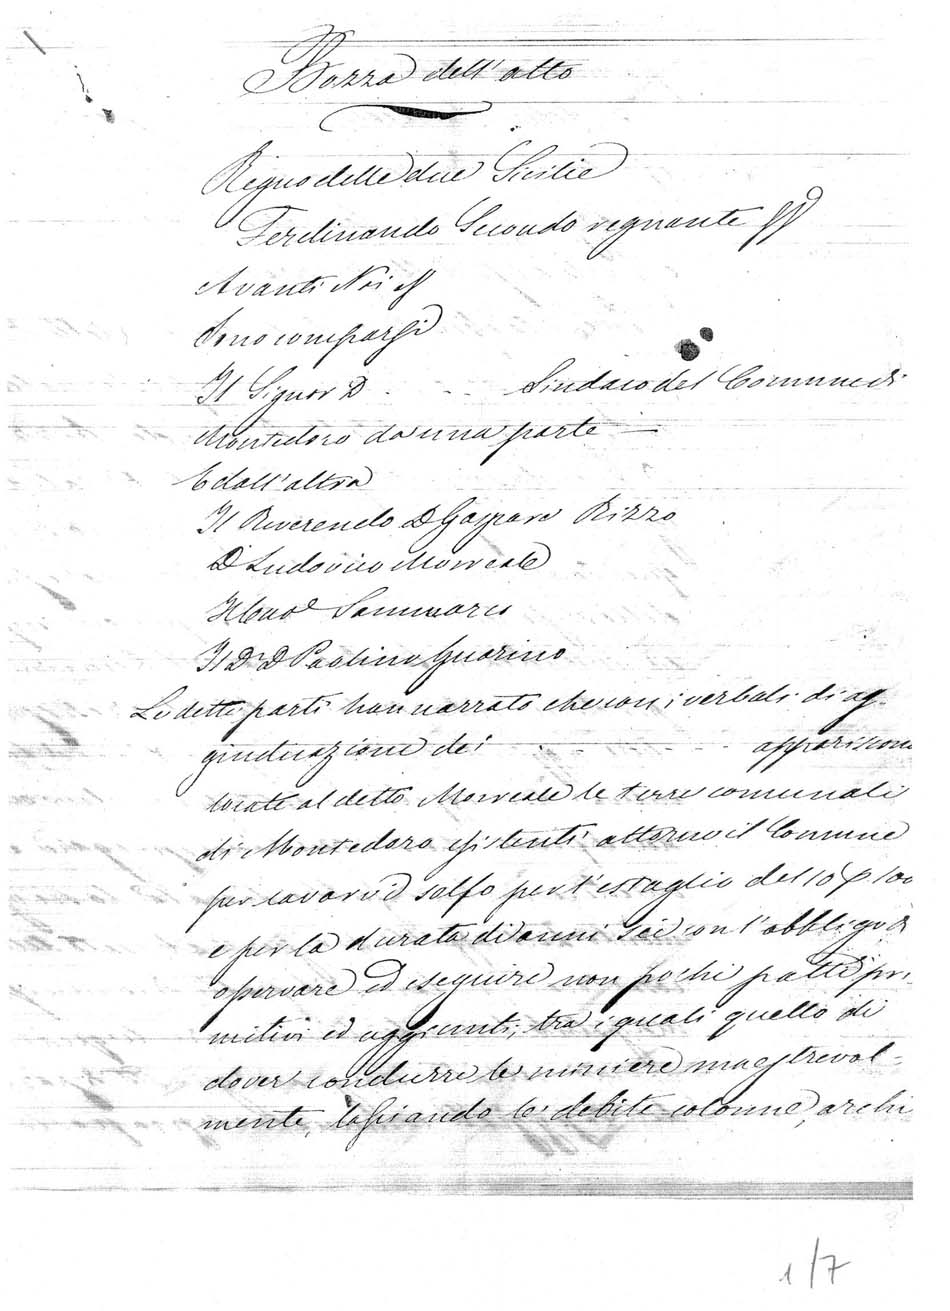 Bozza dell'atto
Regno delle due Sicilie
Ferdinando Secondo regnante
Avanti Noi
Sono comparsi
Il Signor D. . - - . Sindaco del Comune di
Montedoro da una parte —
E dall'altra
Il Reverendo D Gaspare Rizzo
D Ludovico Morreale
Il Cav.e Sammarco
Il Dr D Paolino Guarino
Le dette parti han narrato che con i verbali di ag-
giudicazione dei . - - - - - - - appariscono
locate al detto Morreale le terre comunali
di Montedoro esistenti attorno il Comune
per cavarvi solfo per l'estaglio del 10 p 100
e per la durata di anni sei con l'obbligo di
osservare ed eseguire non pochi patti pri
mitivi ed aggiunti, tra i quali quello di
dover condurre le miniere maestrevol=
mente, lasciando le debite colonne, archi
1/7